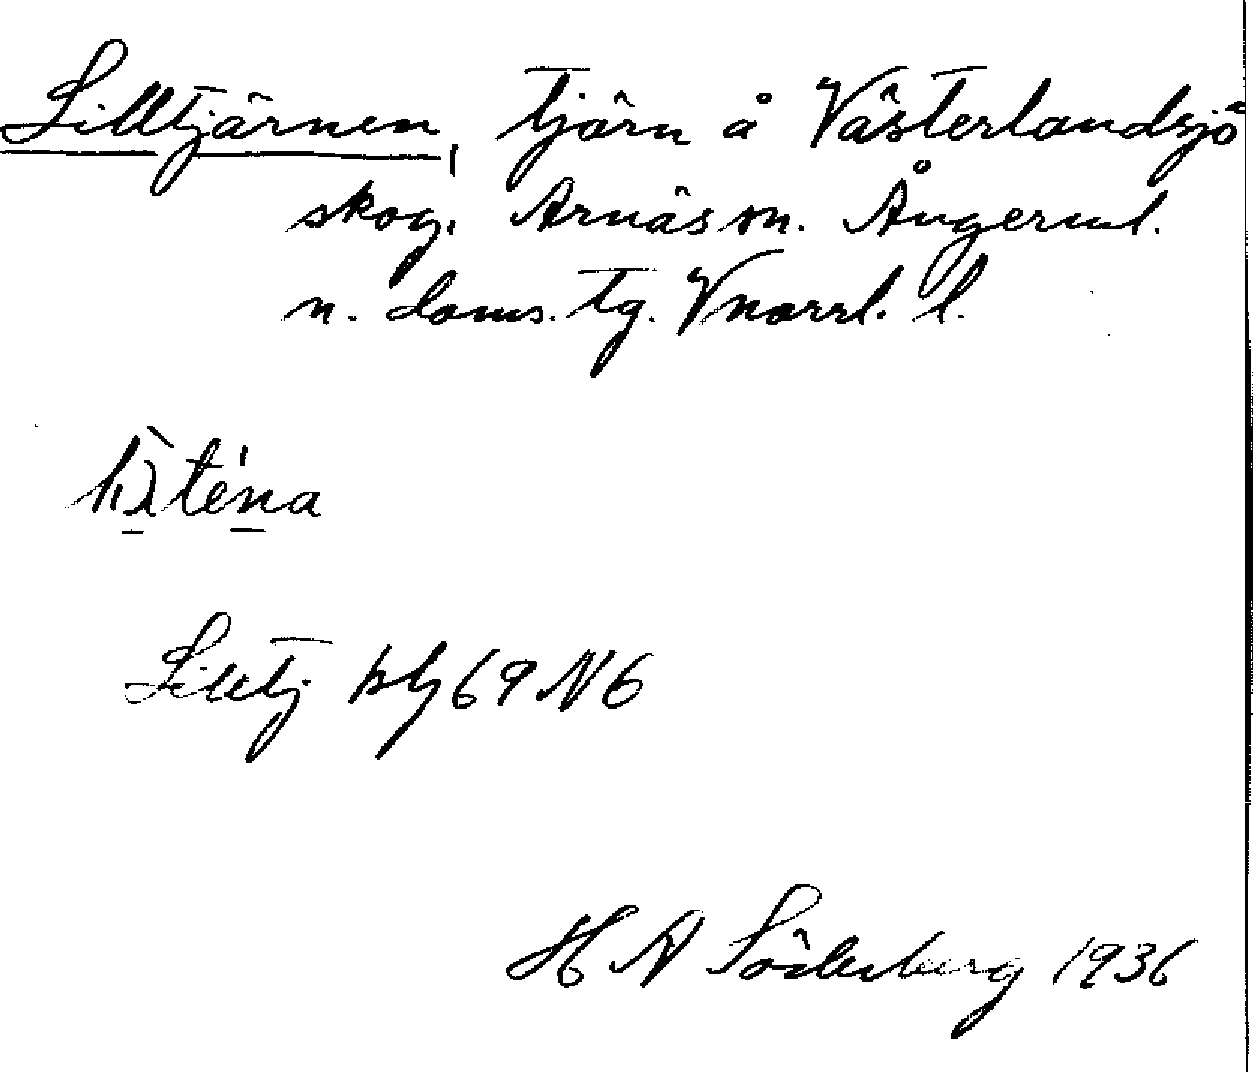 Lilltjärnen, tjärn å Västerlandsjö
skog. Arnäs sn. Ångerml.
n. doms. tg. Vnorrl. l.
Lilltj blj 69 N6
H A Söderberg 1936